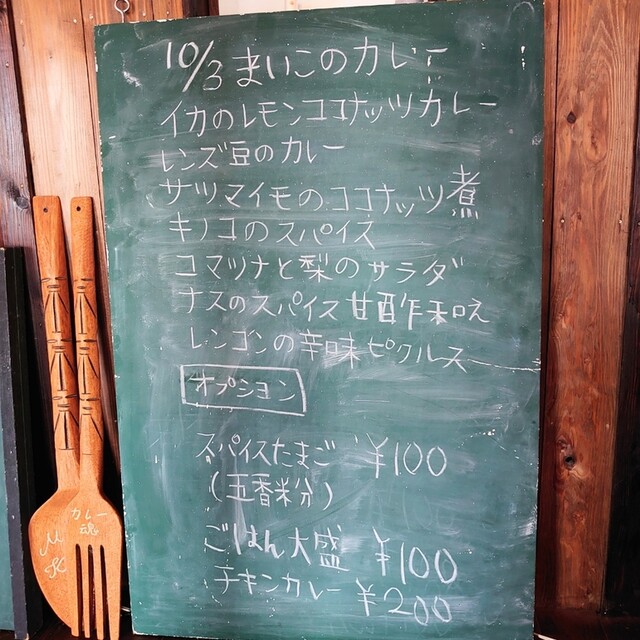 10/3 まいこのカレー
イカのレモンココナッツカレー
レンズ豆のカレー
サツマイモのココナッツ煮
キノコのスパイス
コマツナと梨のサラダ
ナスのスパイス甘酢和え
レンコンの辛味ピクルス
オプション
スパイスたまご ¥100
(五香粉分)
ごはん大盛 ¥100
チキンカレー ¥200
カレー
魂